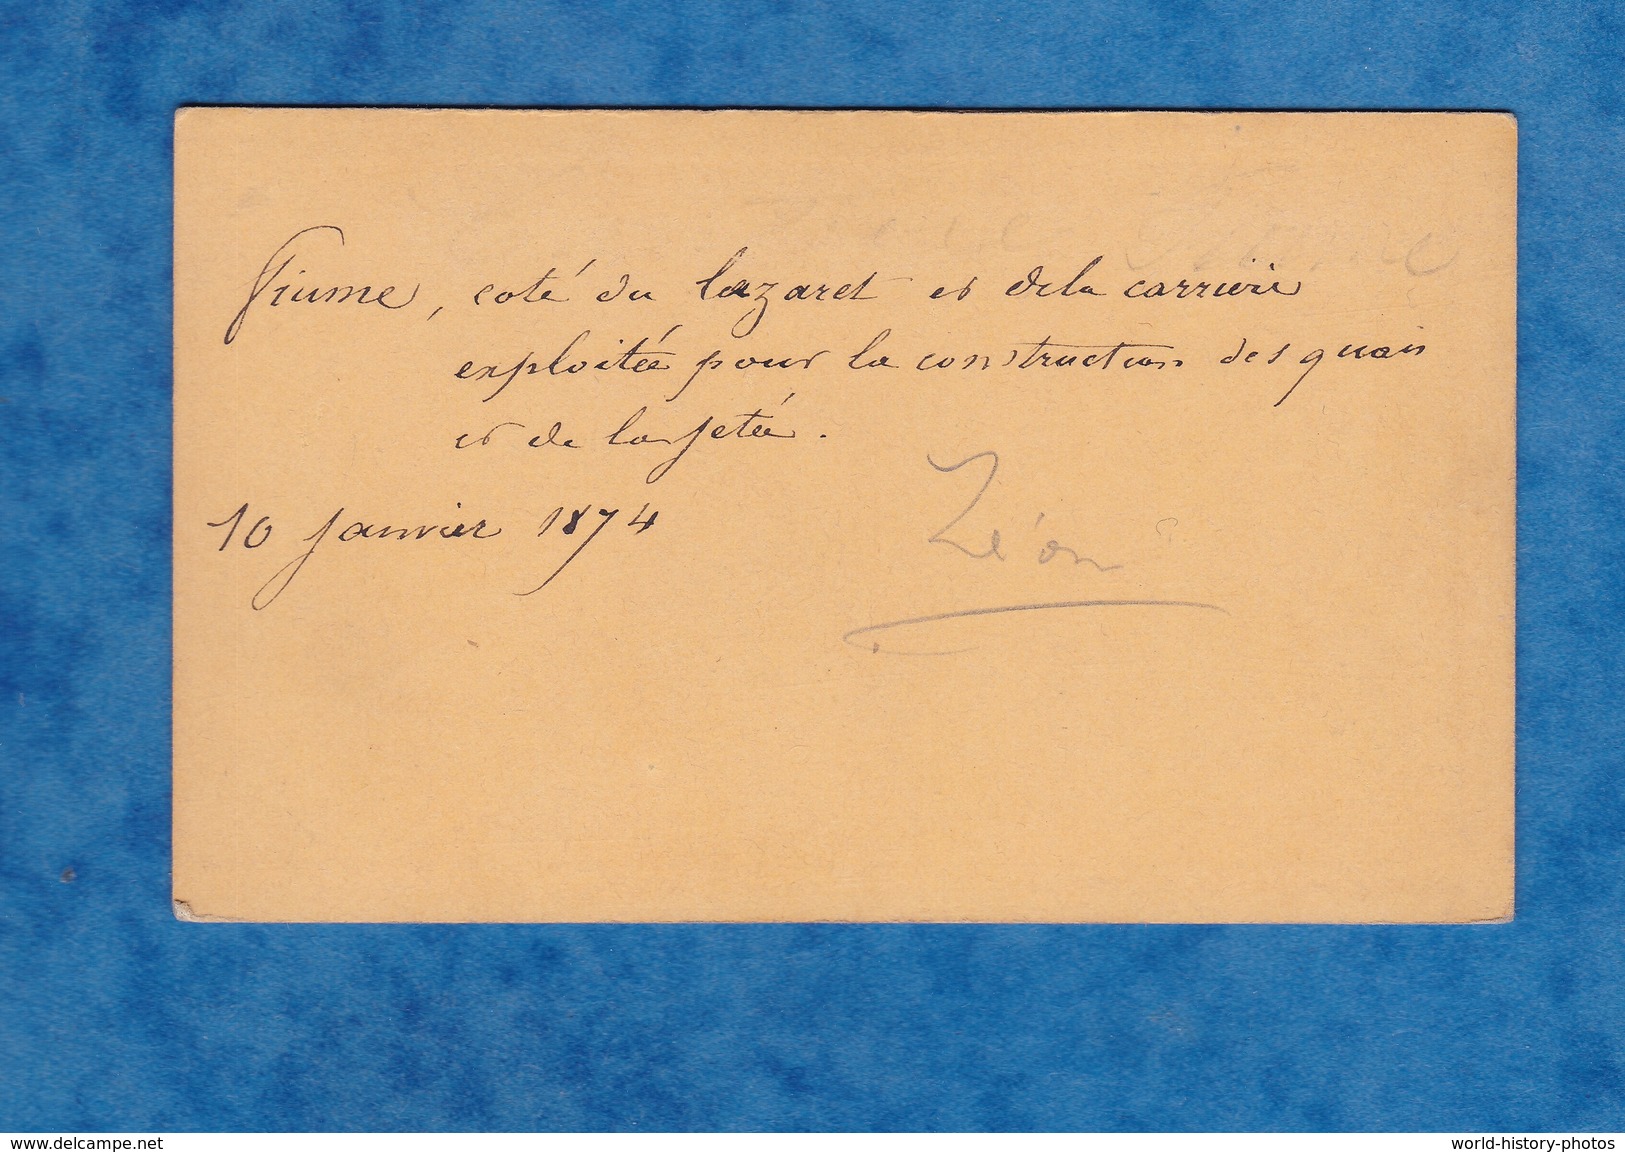 Fiume, coté du lazaret et de la carrière
exploitée pour la construction des quais
et de la jetée.
10 janvier 1874
Léon
www.delcampe.net
world-history-photos